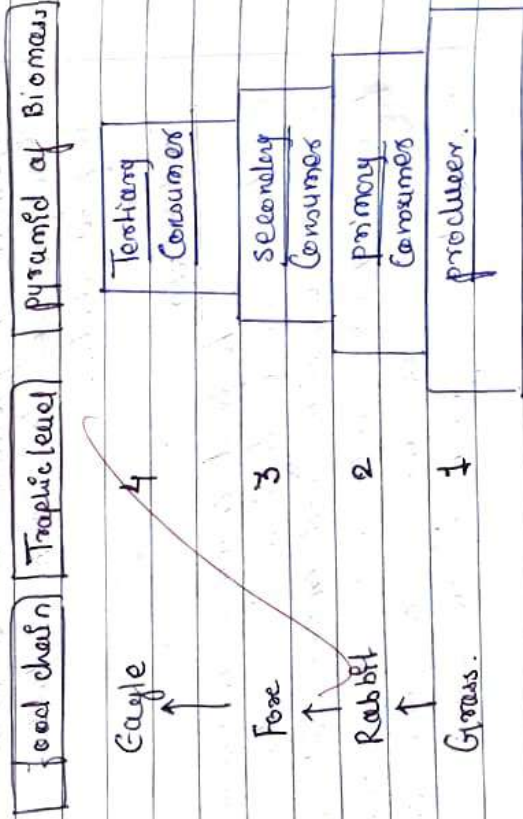 food chain Trophic level pyramid of Biomass
Eagle 4 Tertiary
Consumer
Foxe 3 secondary
Consumer
Rabbit 2 primary
Consumer
Grass. 1 producer.